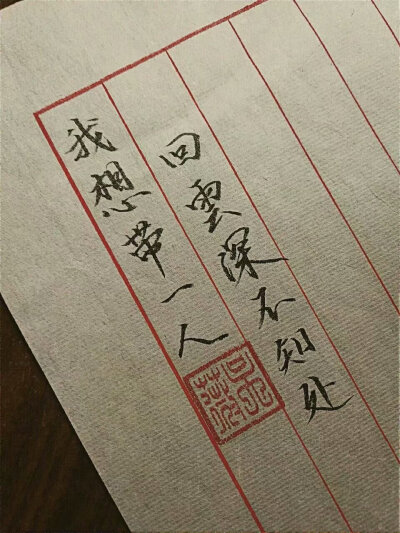 我想带一人
回雲深不知处